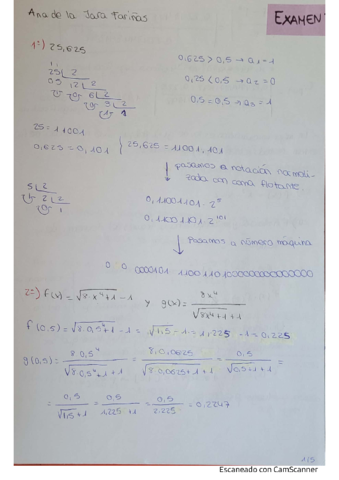 Ana de la Jara Fariñas
EXAMEN
1º) 25,625
0,625 > 0,5 → a₁ = 1
0,25 < 0,5 → a₂ = 0
0,5 = 0,5 → a₃ = 1
25 = 11001
0,625 = 0,101
25,625 = 11001,101
pasamos a notación normalizada con coma flotante
0,11001101 · 2⁵
0,11001101 · 2¹⁰¹
Pasamos a número máquina
2º) f(x) = √(8x⁴+1) - 1 y g(x) = 8x⁴ / (√(8x⁴+1) + 1)
f(0,5) = √(8·0,5⁴+1) - 1 = √1,5 - 1 = 1,225 - 1 = 0,225
g(0,5) = 8·0,5⁴ / (√(8·0,5⁴+1) + 1) = 8·0,0625 / (√(8·0,0625+1) + 1) = 0,5 / (√(0,5+1) + 1) =
= 0,5 / (√1,5 + 1) = 0,5 / (1,225 + 1) = 0,5 / 2,225 = 0,2247
1/5
Escaneado con CamScanner